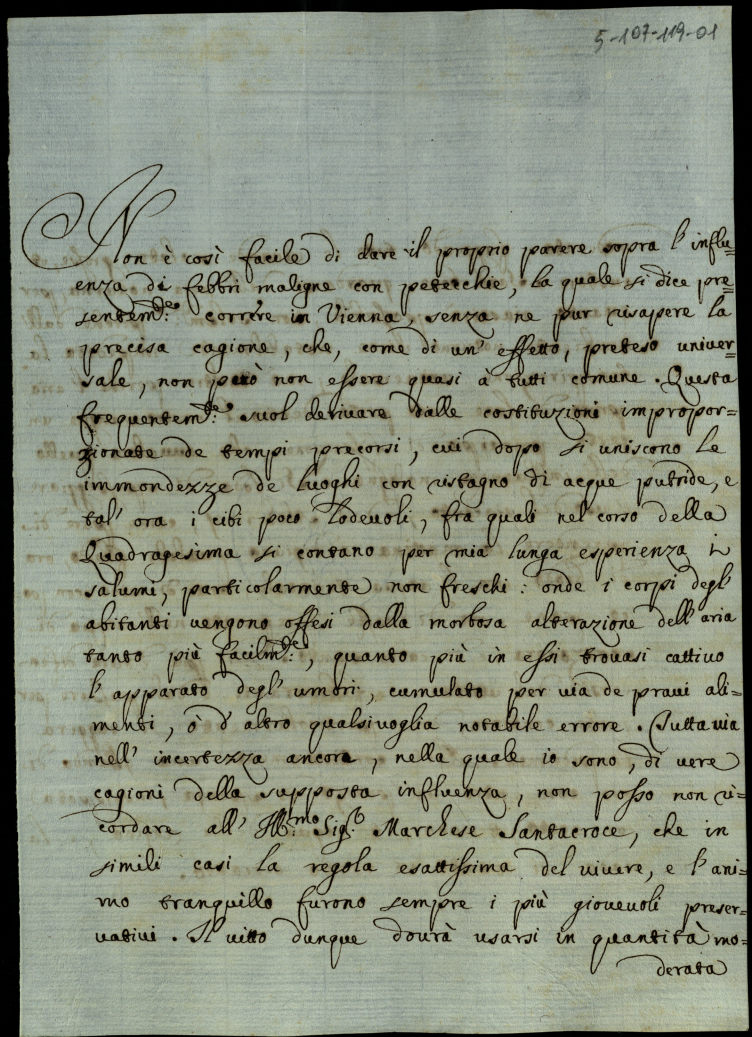 5-107-119-01
Non è così facile di dare il proprio parere sopra l'influ=
enza di febbri maligne con petecchie, la quale si dice pre=
sentem.te correre in Vienna, senza ne pur risapere la
precisa cagione, che, come di un' effetto, preteso univer=
sale, non può non essere quasi à tutti comune. Questa
frequentem.te suol derivare dalle costituzioni impropor=
zionate de tempi precorsi, cui dopo si uniscono le
immondezze de luoghi con ristagno di acque putride, e
tal' ora i cibi poco lodevoli, fra quali nel corso della
Quadragesima si contano per mia lunga esperienza i
salumi, particolarmente non freschi: onde i corpi degl'
abitanti vengono offesi dalla morbosa alterazione dell'aria
tanto più facilm.te, quanto più in essi trovasi cattivo
l'apparato degl' umori, cumulato per via de pravi ali=
menti, ò d'altro qualsivoglia notabile errore. Tuttavia
nell' incertezza ancora, nella quale io sono, di vere
cagioni della supposta influenza, non posso non ri=
cordare all' Ill.mo Sig.r Marchese Santacroce, che in
simili casi la regola esattissima del vivere, e l'ani=
mo tranquillo furono sempre i più giovevoli preser=
vativi. Il vitto dunque dovrà usarsi in quantità mo=
derata